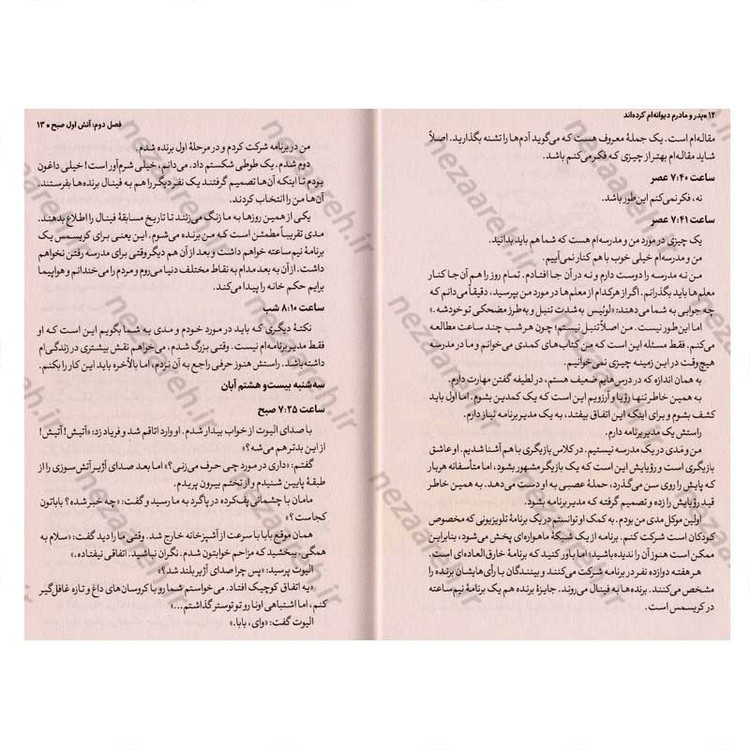 ۱۲ • پدر و مادرم دیوانه‌ام کرده‌اند
مقاله‌ام است. یک جملهٔ معروف هست که می‌گوید آدم‌ها را تشنه بگذارید. اصلاً
شاید مقاله‌ام بهتر از چیزی که فکر می‌کنم باشد.
ساعت ۷:۴۰ عصر
نه، فکر نمی‌کنم این‌طور باشد.
ساعت ۷:۴۱ عصر
یک چیزی در مورد من و مدرسه‌ام هست که شما هم باید بدانید.
من و مدرسه‌ام خیلی خوب با هم کنار نمی‌آییم.
من نه مدرسه را دوست دارم و نه در آن جا افتادم. تمام روز را هم آن‌جا کنار
معلم‌ها باید بگذرانم. اگر از هرکدام از معلم‌ها در مورد من بپرسید، دقیقاً می‌دانم که
چه جوابی به شما می‌دهند: «لوئیس به‌شدت تنبل و به‌طرز مضحکی تو خودشه.»
اما این‌طور نیست. من اصلاً تنبل نیستم؛ چون هر شب چند ساعت مطالعه
می‌کنم. فقط مسئله این است که من کتاب‌های کمدی می‌خوانم و ما در مدرسه
هیچ‌وقت در این زمینه چیزی نمی‌خوانیم.
به همان اندازه که در درس‌هایم ضعیف هستم، در لطیفه گفتن مهارت دارم.
به همین خاطر تنها رؤیا و آرزویم این است که یک کمدین بشوم. اما اول باید
کشف بشوم و برای اینکه این اتفاق بیفتد، به یک مدیربرنامه نیاز دارم.
راستش یک مدیربرنامه دارم.
من و مَدی در یک مدرسه نیستیم. در کلاس بازیگری با هم آشنا شدیم. او عاشق
بازیگری است و رؤیایش این است که یک بازیگر مشهور بشود، اما متأسفانه هر بار
که پایش را روی سن می‌گذارد، حملهٔ عصبی به او دست می‌دهد. به همین خاطر
قید رؤیایش را زده و تصمیم گرفته که مدیربرنامه بشود.
اولین موکل مدی من بودم. به کمک او توانستم در یک برنامهٔ تلویزیونی که مخصوص
کودکان است شرکت کنم. برنامه از یک شبکهٔ ماهواره‌ای پخش می‌شود، بنابراین
ممکن است هنوز آن را ندیده باشید؛ اما باور کنید که برنامهٔ خارق‌العاده‌ای است.
هر هفته دوازده نفر در برنامه شرکت می‌کنند و بینندگان با رأی‌هایشان برنده را
مشخص می‌کنند. برنده‌ها به فینال می‌روند. جایزهٔ برنده هم یک برنامهٔ نیم‌ساعته
در کریسمس است.
فصل دوم: آتش اول صبح • ۱۳
من در برنامه شرکت کردم و در مرحلهٔ اول برنده شدم.
دوم شدم. یک طوطی شکستم داد. می‌دانم، خیلی شرم‌آور است! خیلی داغون
بودم تا اینکه آن‌ها تصمیم گرفتند یک نفر دیگر را هم به فینال برنده‌ها بفرستند.
آن‌ها من را انتخاب کردند.
یکی از همین روزها به ما زنگ می‌زنند تا تاریخ مسابقهٔ فینال را اطلاع بدهند.
مدی تقریباً مطمئن است که من برنده می‌شوم. این یعنی برای کریسمس یک
برنامهٔ نیم‌ساعته خواهم داشت و بعد از آن هم دیگر وقتی برای مدرسه رفتن نخواهم
داشت. از آن به بعد مدام به نقاط مختلف دنیا می‌روم و مردم را می‌خندانم و هواپیما
برایم حکم خانه را پیدا می‌کند.
ساعت ۸:۱۰ شب
نکتهٔ دیگری که باید در مورد خودم و مدی به شما بگویم این است که او
فقط مدیربرنامه‌ام نیست. وقتی بزرگ شدم، می‌خواهم نقش بیشتری در زندگی‌ام
داشته‌باشد. راستش هنوز حرفی راجع به آن نزدم، اما بالأخره باید این کار را بکنم.
سه‌شنبه بیست‌و هشتم آبان
ساعت ۷:۲۵ صبح
با صدای الیوت از خواب بیدار شدم. او وارد اتاقم شد و فریاد زد: «آتیش! آتیش!
از این بدتر هم می‌شه؟»
گفتم: «داری در مورد چی حرف می‌زنی؟» اما بعد صدای آژیر آتش‌سوزی را از
طبقهٔ پایین شنیدیم و از تختم بیرون پریدم.
مامان با چشمانی پف‌کرده در پاگرد به ما رسید و گفت: «چه خبر شده؟ باباتون
کجاست؟»
همان موقع بابا با سرعت از آشپزخانه خارج شد. وقتی ما را دید گفت: «سلام به
همگی. ببخشید که مزاحم خوابتون شدم. نگران نباشید. اتفاقی نیفتاده.»
الیوت پرسید: «پس چرا صدای آژیر بلند شد؟»
«یه اتفاق کوچیک افتاد. می‌خواستم شما رو با کروسان‌های داغ و تازه غافل‌گیر
کنم، اما اشتباهی اونا رو تو توستر گذاشتم...»
الیوت گفت: «وای، بابا.»
nezaareh.ir